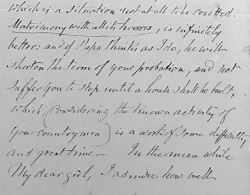 which is a situation not at all to be coveted.
Matrimony with all its horrors, is infinitely
better: and if Papa thinks as I do, he will
shorten the term of your probation, and not
suffer you to stop until a house shall be built,
which (considering the known activity of
your countrymen) is a work of some difficulty
and great time — In the mean while
My dear girl, I admire how well